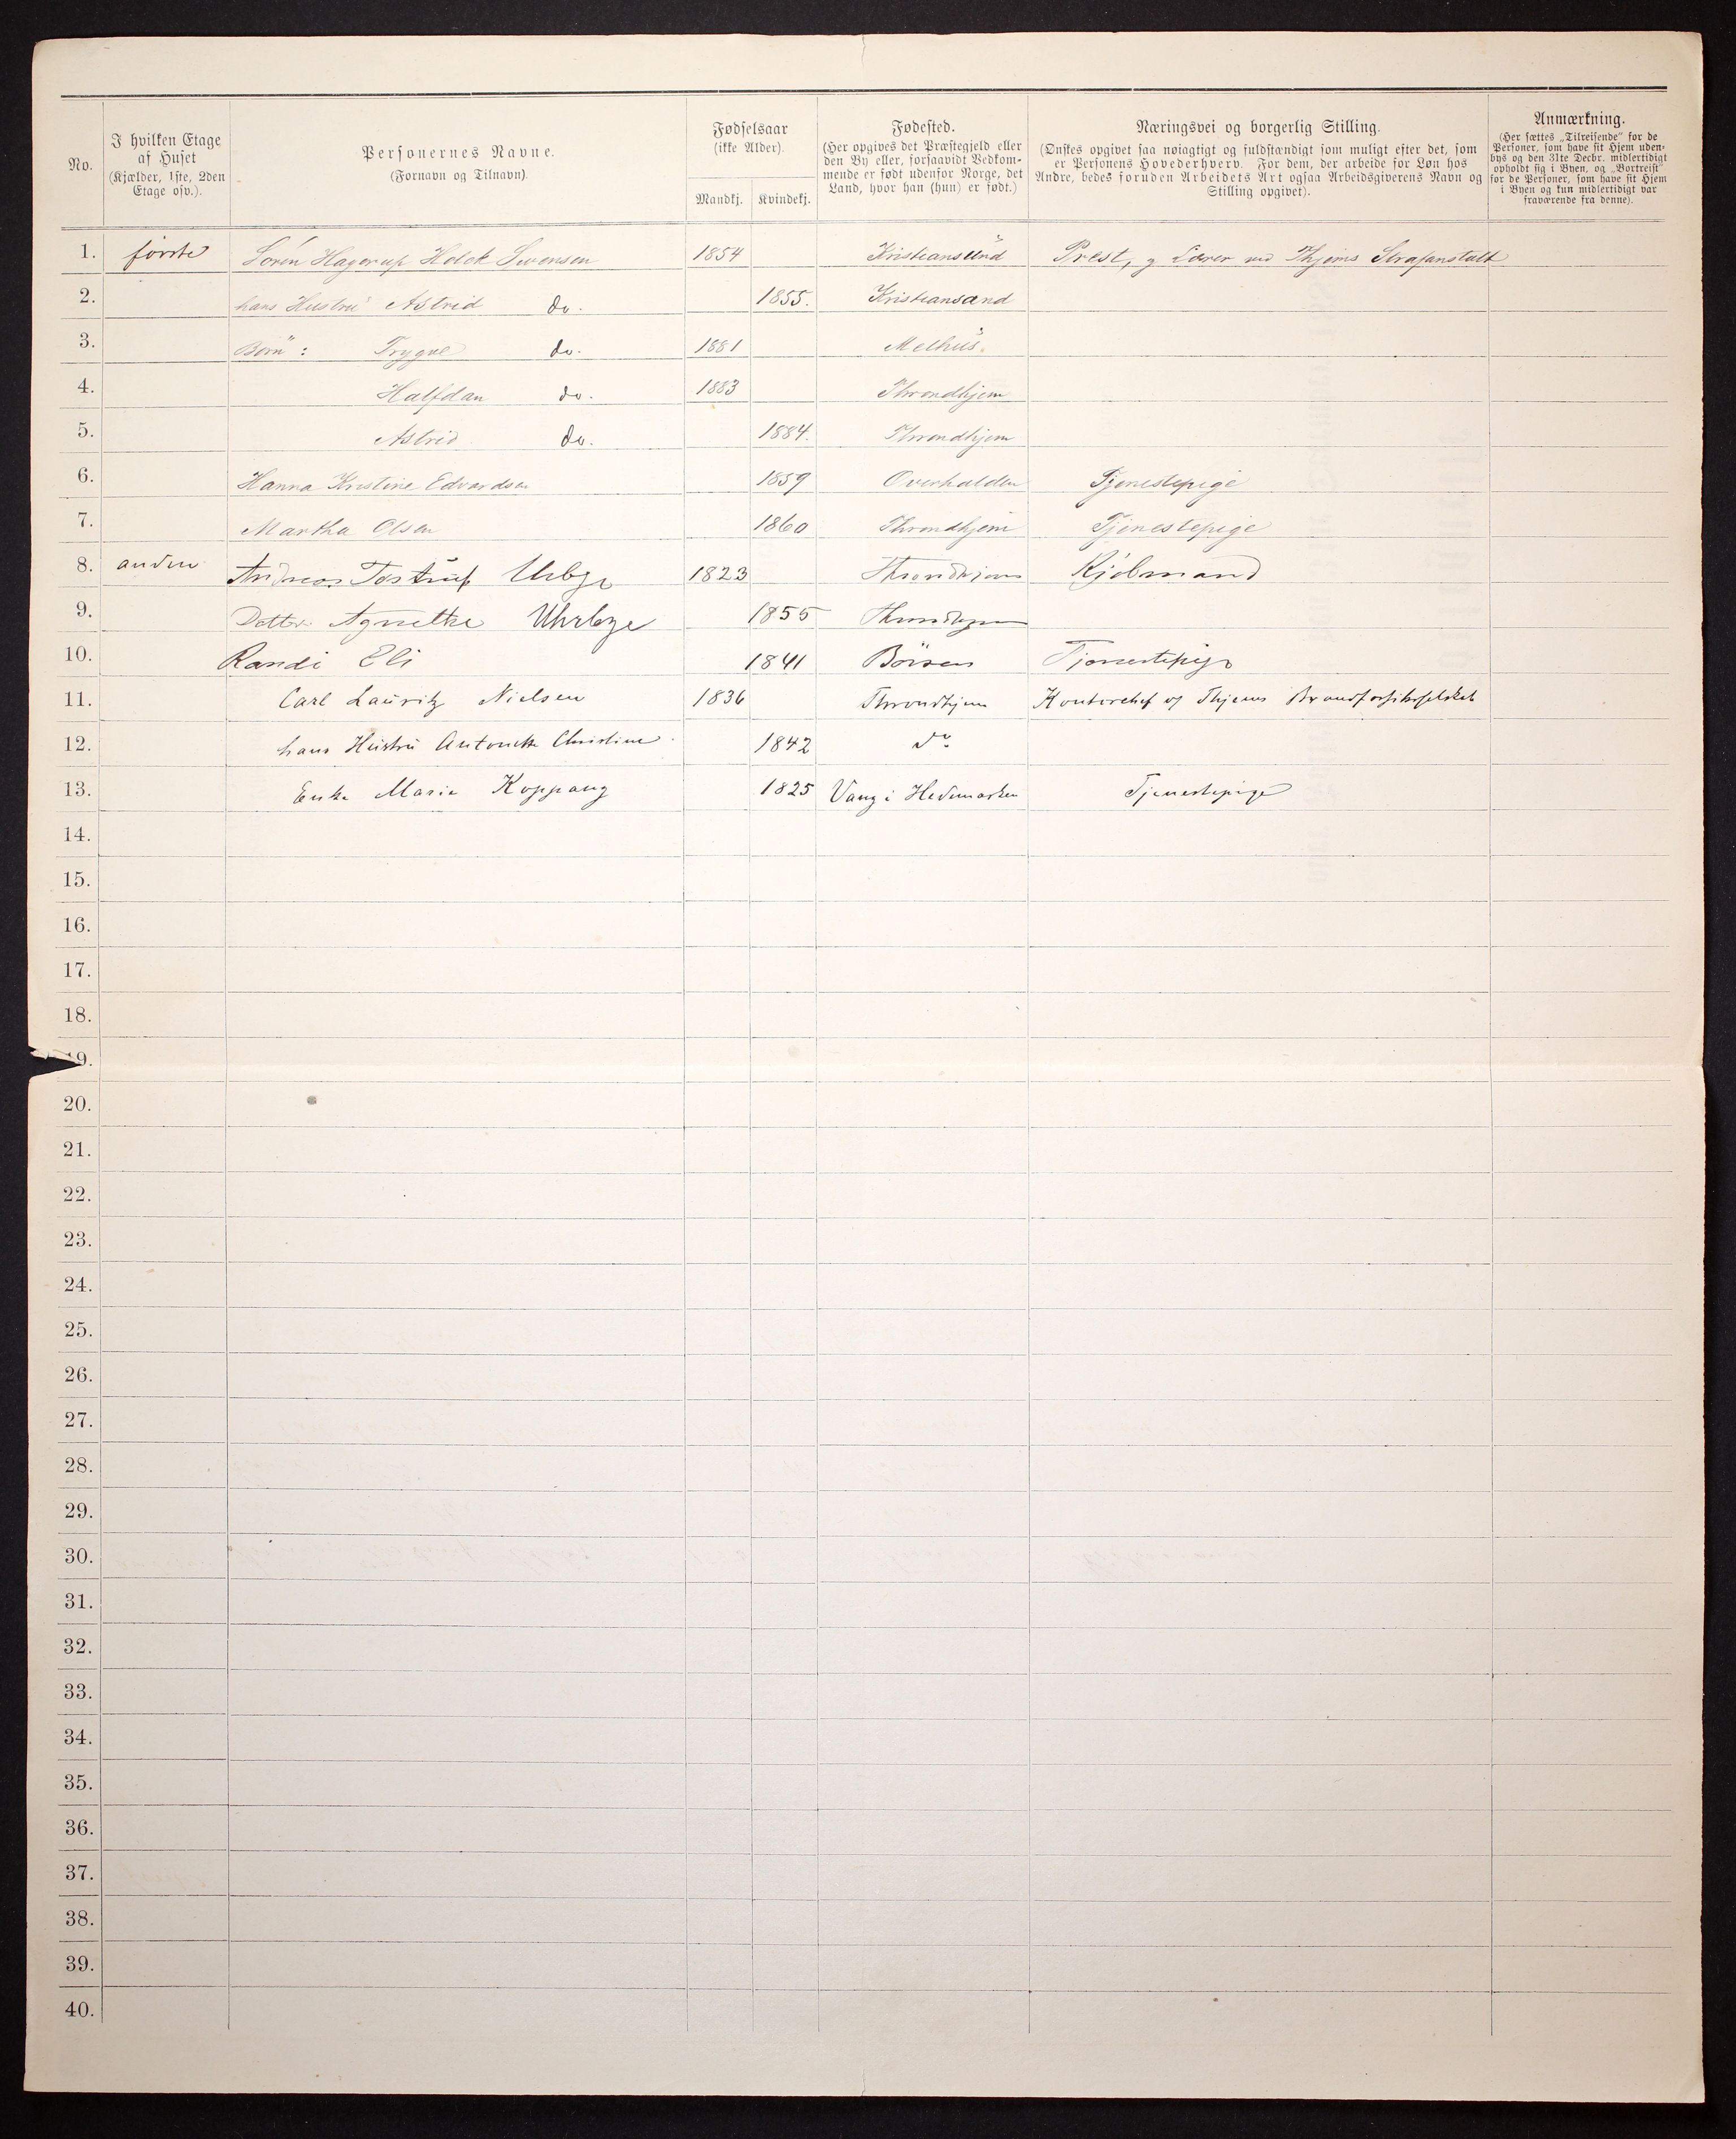 No.
I hvilken Etage
af Huset
(Kjælder, 1ste, 2den
Etage osv.).
Personernes Navne.
(Fornavn og Tilnavn).
Fødselsaar
(ikke Alder).
Mandkj. Kvindekj.
Fødested.
(Her opgives det Præstegjeld eller
den By eller, forsaavidt Vedkom-
mende er født udenfor Norge, det
Land, hvor han (hun) er født.)
Næringsvei og borgerlig Stilling.
(Ønskes opgivet saa nøiagtigt og fuldstændigt som muligt efter det, som
er Personens Hovederhverv. For dem, der arbeide for Løn hos
Andre, bedes foruden Arbeidets Art ogsaa Arbeidsgiverens Navn og
Stilling opgivet).
Anmærkning.
(Her sættes „Tilreisende" for de
Personer, som have sit Hjem uden-
bys og den 31te Decbr. midlertidigt
opholdt sig i Byen, og „Bortreist"
for de Personer, som have sit Hjem
i Byen og kun midlertidigt var
fraværende fra denne).
1. første Sørén Hagerup Holck Svensen 1854 Kristiansund Prest, og Lærer ved Thjems Strafanstalt
2. hans Hustru Astrid do. 1855. Kristiansand
3. Børn: Trygve do. 1881 Melhus.
4. Halfdan do. 1883 Throndhjem
5. Astrid do. 1884. Throndhjem
6. Hanna Kristine Edvardsen 1859 Overhalden Tjenestepige
7. Martha Olsen 1860 Throndhjem Tjenestepige
8. anden Andreas Tostrup Urbye 1823 Throndhjem Kjøbmand
9. Datter Agnethe Uhrbye 1855 Throndhjem
10. Randi Eli 1841 Börsen Tjenestepige
11. Carl Lauritz Nielsen 1836 Throndhjem Kontorchef of Thjems Brandforsikrselskab
12. hans Hustru Antonette Christine 1842 do
13. Enke Marie Koppang 1825 Vang i Hedemarken Tjenestepige
14.
15.
16.
17.
18.
19.
20.
21.
22.
23.
24.
25.
26.
27.
28.
29.
30.
31.
32.
33.
34.
35.
36.
37.
38.
39.
40.